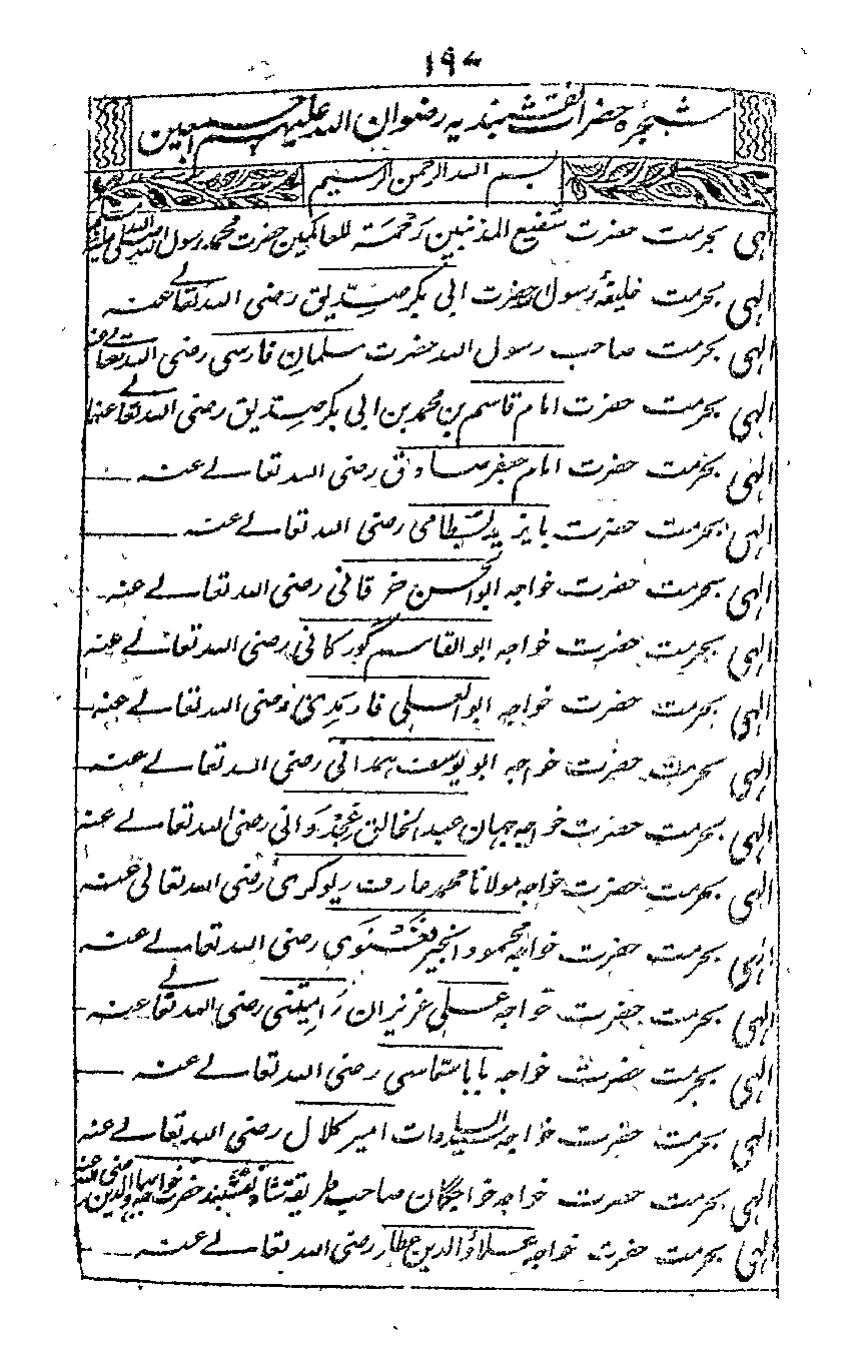 ۱۹۷
شجرہ حضرات نقشبندیہ رضوان اللہ علیہم اجمعین
بسم اللہ الرحمن الرحیم
الٰہی بحرمت حضرت شفیع المذنبین رَحْمَۃ للعالمین حضرت محمد رسول اللہ صلی اللہ علیہ وسلم
الٰہی بحرمت خلیفۂ رسول اللہ حضرت ابی بکر صِدّیق رضی اللہ تعالےٰ عنہ
الٰہی بحرمت صاحب رسول اللہ حضرت سلمان فارسی رضی اللہ تعالےٰ عنہ
الٰہی بحرمت حضرت امام قاسم بن محمد بن ابی بکر صِدّیق رضی اللہ تعالےٰ عنہا
الٰہی بحرمت حضرت امام جعفر صادق رضی اللہ تعالےٰ عنہ
الٰہی بحرمت حضرت بایزید بسطامی رضی اللہ تعالےٰ عنہ
الٰہی بحرمت حضرت خواجہ ابوالحسن خرقانی رضی اللہ تعالےٰ عنہ
الٰہی بحرمت حضرت خواجہ ابوالقاسم گورکانی رضی اللہ تعالےٰ عنہ
الٰہی بحرمت حضرت خواجہ ابوالعلی فارمدی رضی اللہ تعالےٰ عنہ
الٰہی بحرمت حضرت خواجہ ابو یوسف ہمدانی رضی اللہ تعالےٰ عنہ
الٰہی بحرمت حضرت خواجہ جہان عبدالخالق غجدَوانی رضی اللہ تعالےٰ عنہ
الٰہی بحرمت حضرت خواجہ مولانا محمد عارف ریوکری رضی اللہ تعالیٰ عنہ
الٰہی بحرمت حضرت خواجہ محمود انجیر فغنوی رضی اللہ تعالےٰ عنہ
الٰہی بحرمت حضرت خواجہ علی عزیزان رَامیتنی رضی اللہ تعالےٰ عنہ
الٰہی بحرمت حضرت خواجہ بابا سماسی رضی اللہ تعالےٰ عنہ
الٰہی بحرمت حضرت خواجہ سید السادات امیر کلال رضی اللہ تعالےٰ عنہ
الٰہی بحرمت حضرت خواجہ خواجگان صاحب طریقت شاہ نقشبند حضرت خواجہ بہاء الدین رضی اللہ عنہ
الٰہی بحرمت حضرت خواجہ علاؤ الدین عطار رضی اللہ تعالےٰ عنہ